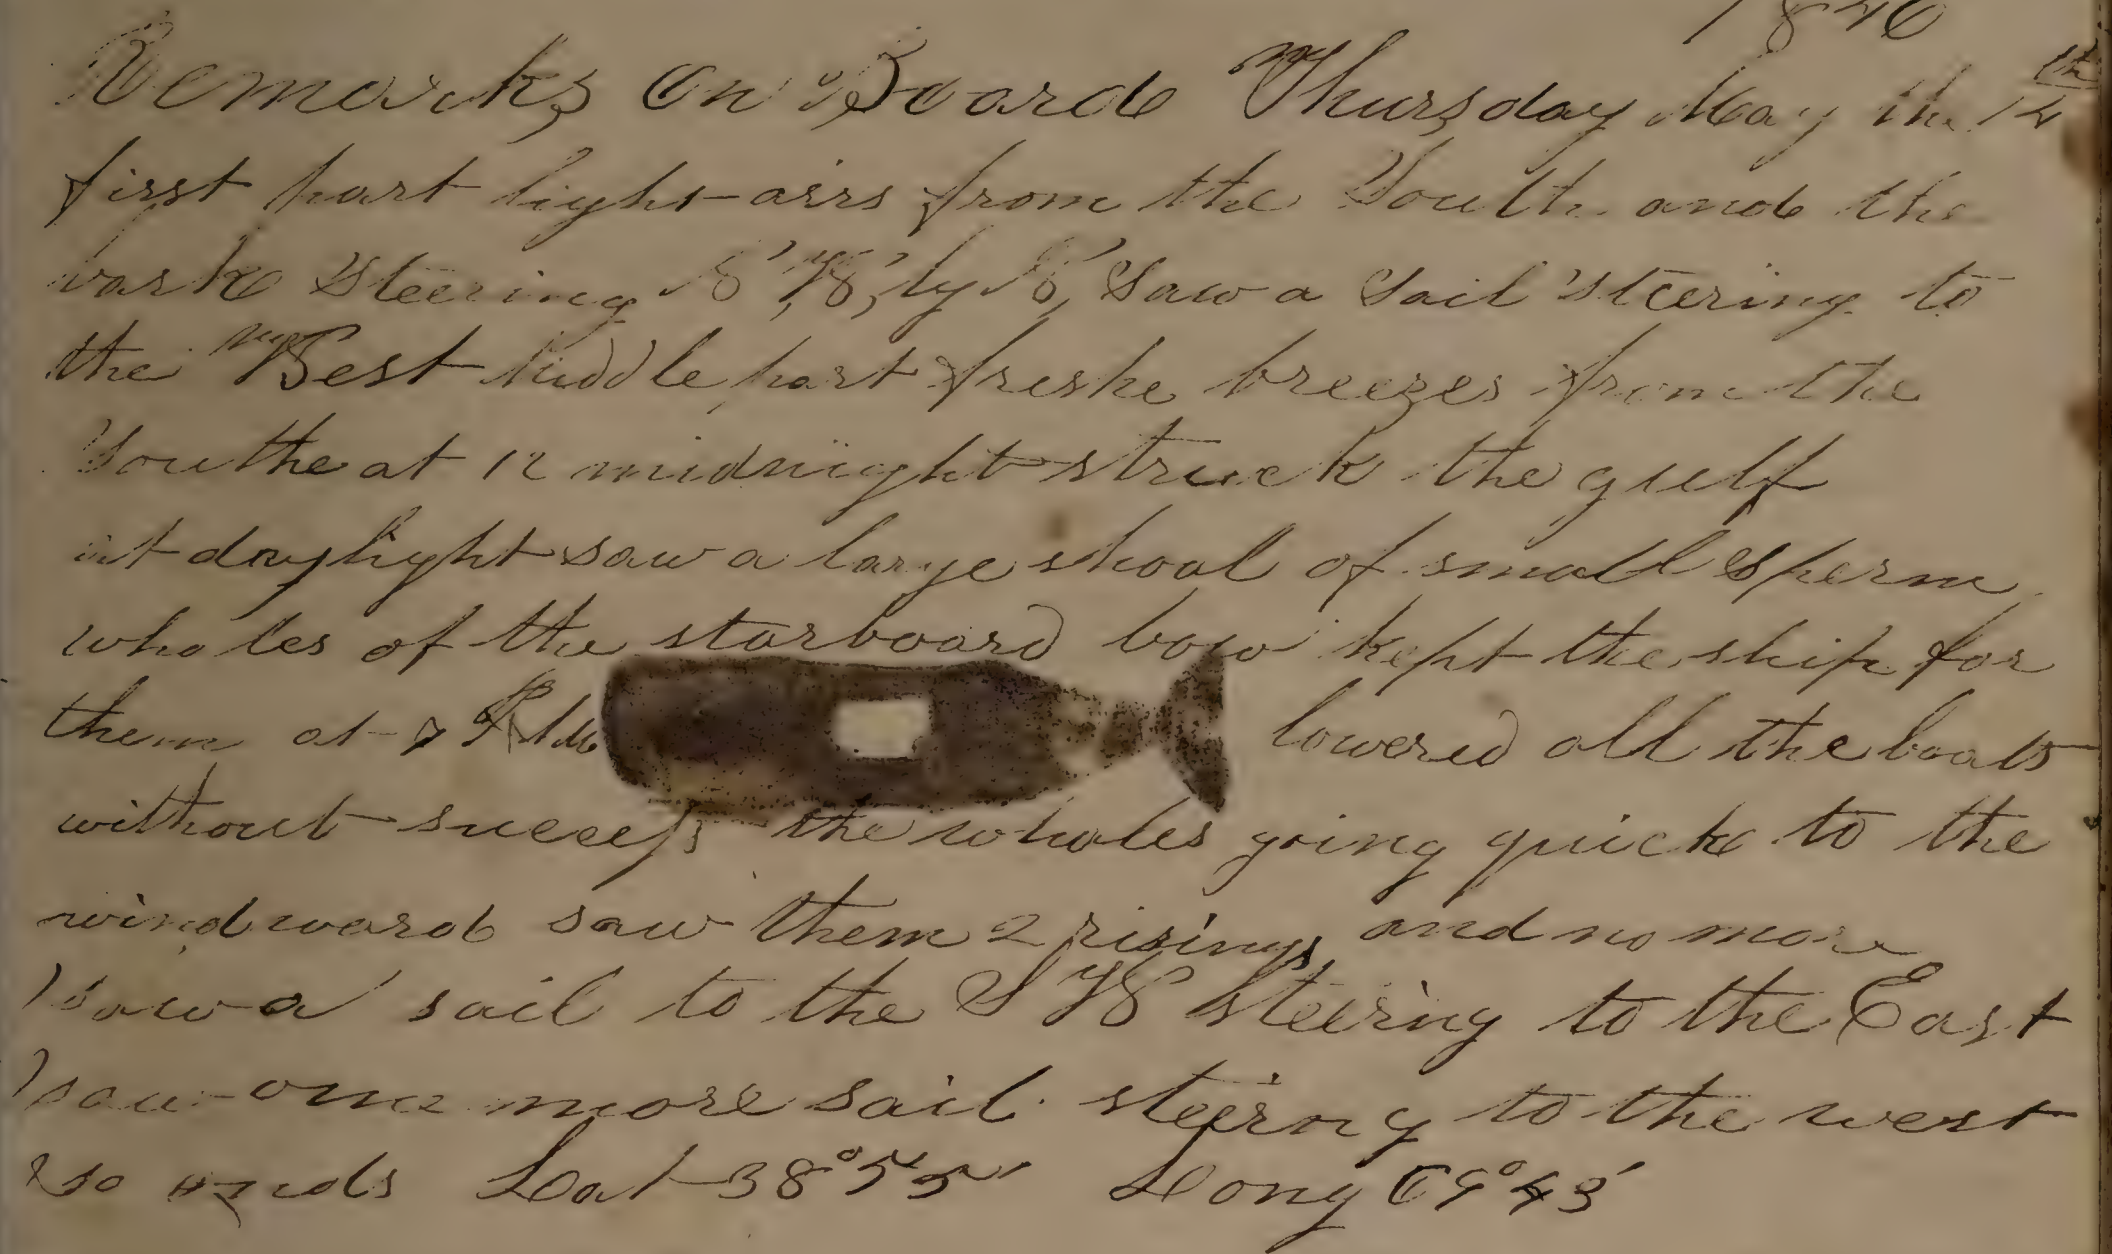 1846
Remarks on Board Thursday May the 14th
first part light airs from the South and the
bark Steering N,W,by N, Saw a Sail steering to
the West Middle part freshe breezes from the
Southe at 12 midnight struck the gulf
at daylight saw a large shoal of small Sperm
whales of the starboard bow kept the ship for
them at 7 lowered all the boats
without success the whales going quick to the
windward saw them 2 risings and no more
saw a sail to the S W Steering to the East
saw one more sail steering to the west
so ends Lat 38°55' Long 69°43'